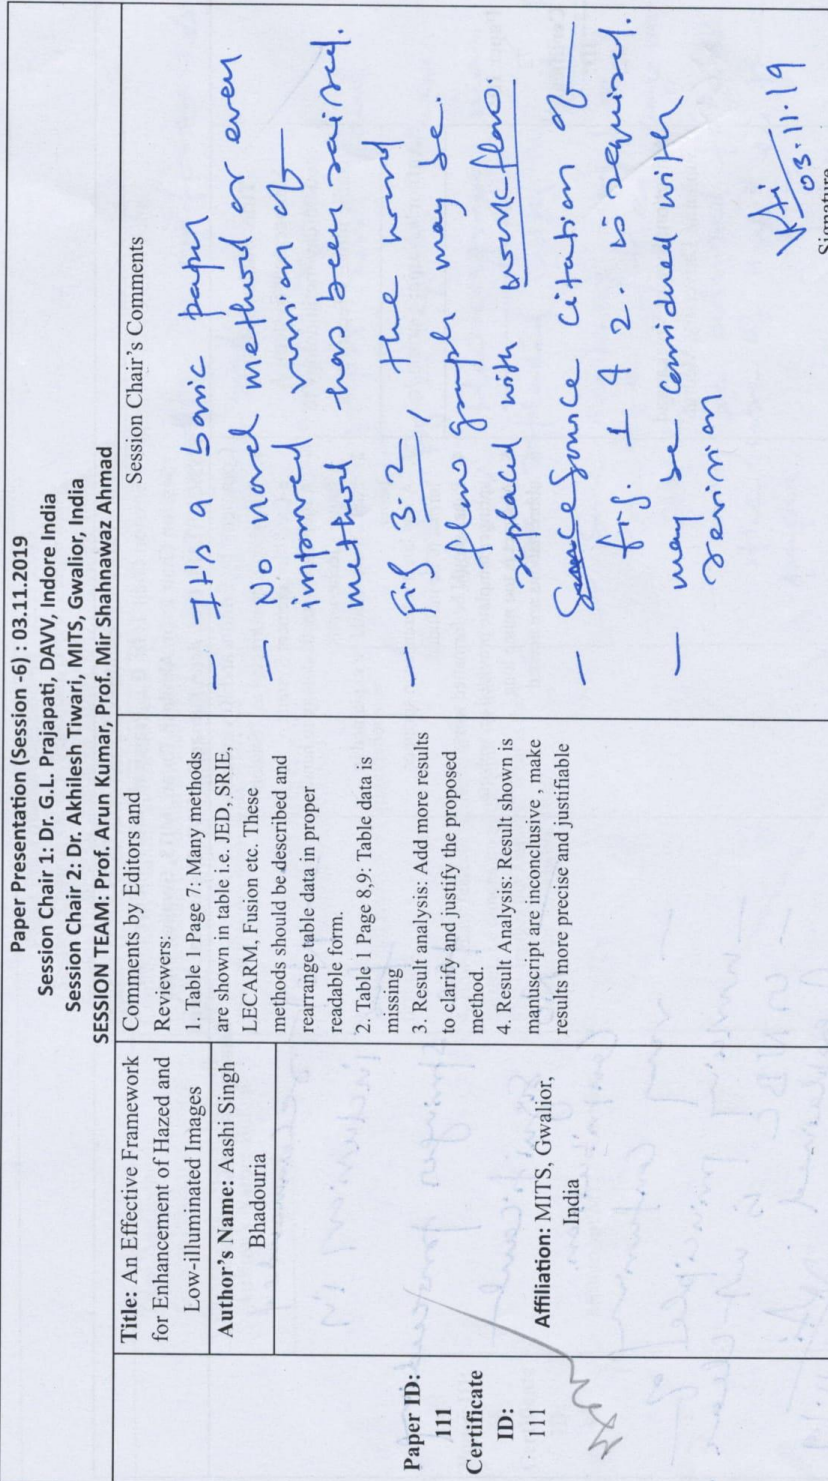 Paper Presentation (Session -6) : 03.11.2019
Session Chair 1: Dr. G.L. Prajapati, DAVV, Indore India
Session Chair 2: Dr. Akhilesh Tiwari, MITS, Gwalior, India
SESSION TEAM: Prof. Arun Kumar, Prof. Mir Shahnawaz Ahmad
Paper ID:
111
Certificate
ID:
111
Title: An Effective Framework
for Enhancement of Hazed and
Low-illuminated Images
Author's Name: Aashi Singh
Bhadouria
Affiliation: MITS, Gwalior,
India
Comments by Editors and
Reviewers:
1. Table 1 Page 7: Many methods
are shown in table i.e. JED, SRIE,
LECARM, Fusion etc. These
methods should be described and
rearrange table data in proper
readable form.
2. Table 1 Page 8,9: Table data is
missing
3. Result analysis: Add more results
to clarify and justify the proposed
method.
4. Result Analysis: Result shown is
manuscript are inconclusive , make
results more precise and justifiable
Session Chair's Comments
— It's a basic paper
— No novel method or even
improved version of
method has been raised.
— Fig 3.2, the word
flow graph may be
replaced with work flow.
— Source citation of
fig. 1 & 2. is required.
— may be considered with
revision
03.11.19
Signature